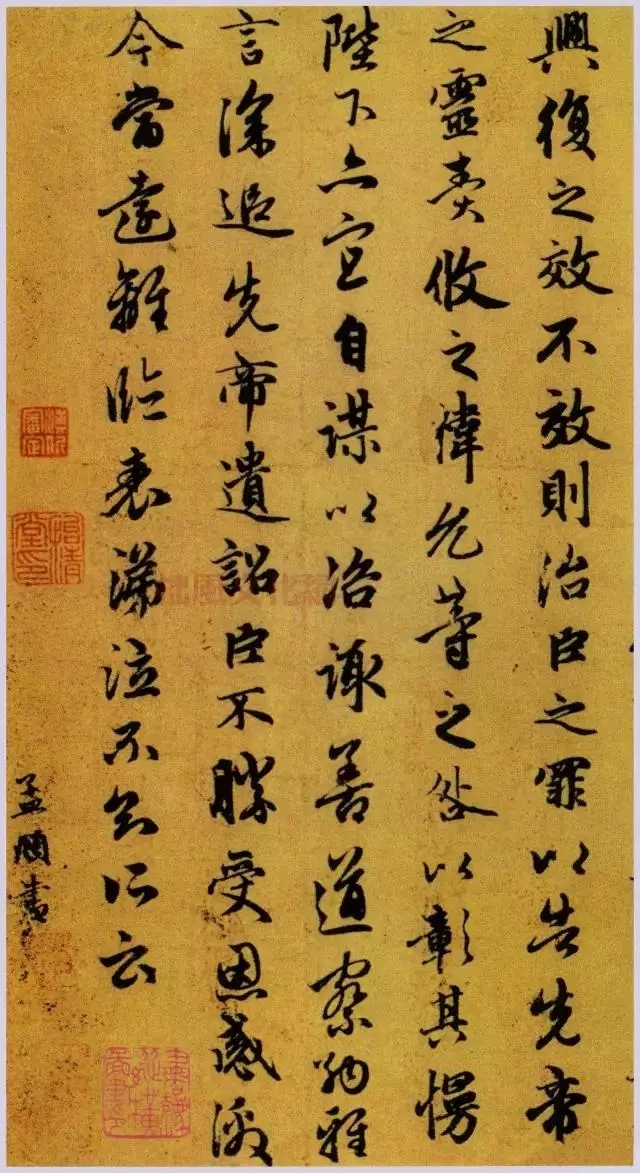 興復之效不效則治臣之罪以告先帝
之靈責攸之禕允等之咎以彰其慢
陛下亦宜自謀以諮諏善道察納雅
言深追先帝遺詔臣不勝受恩感激
今當遠離臨表涕泣不知所云
孟頫書
拙風文化網